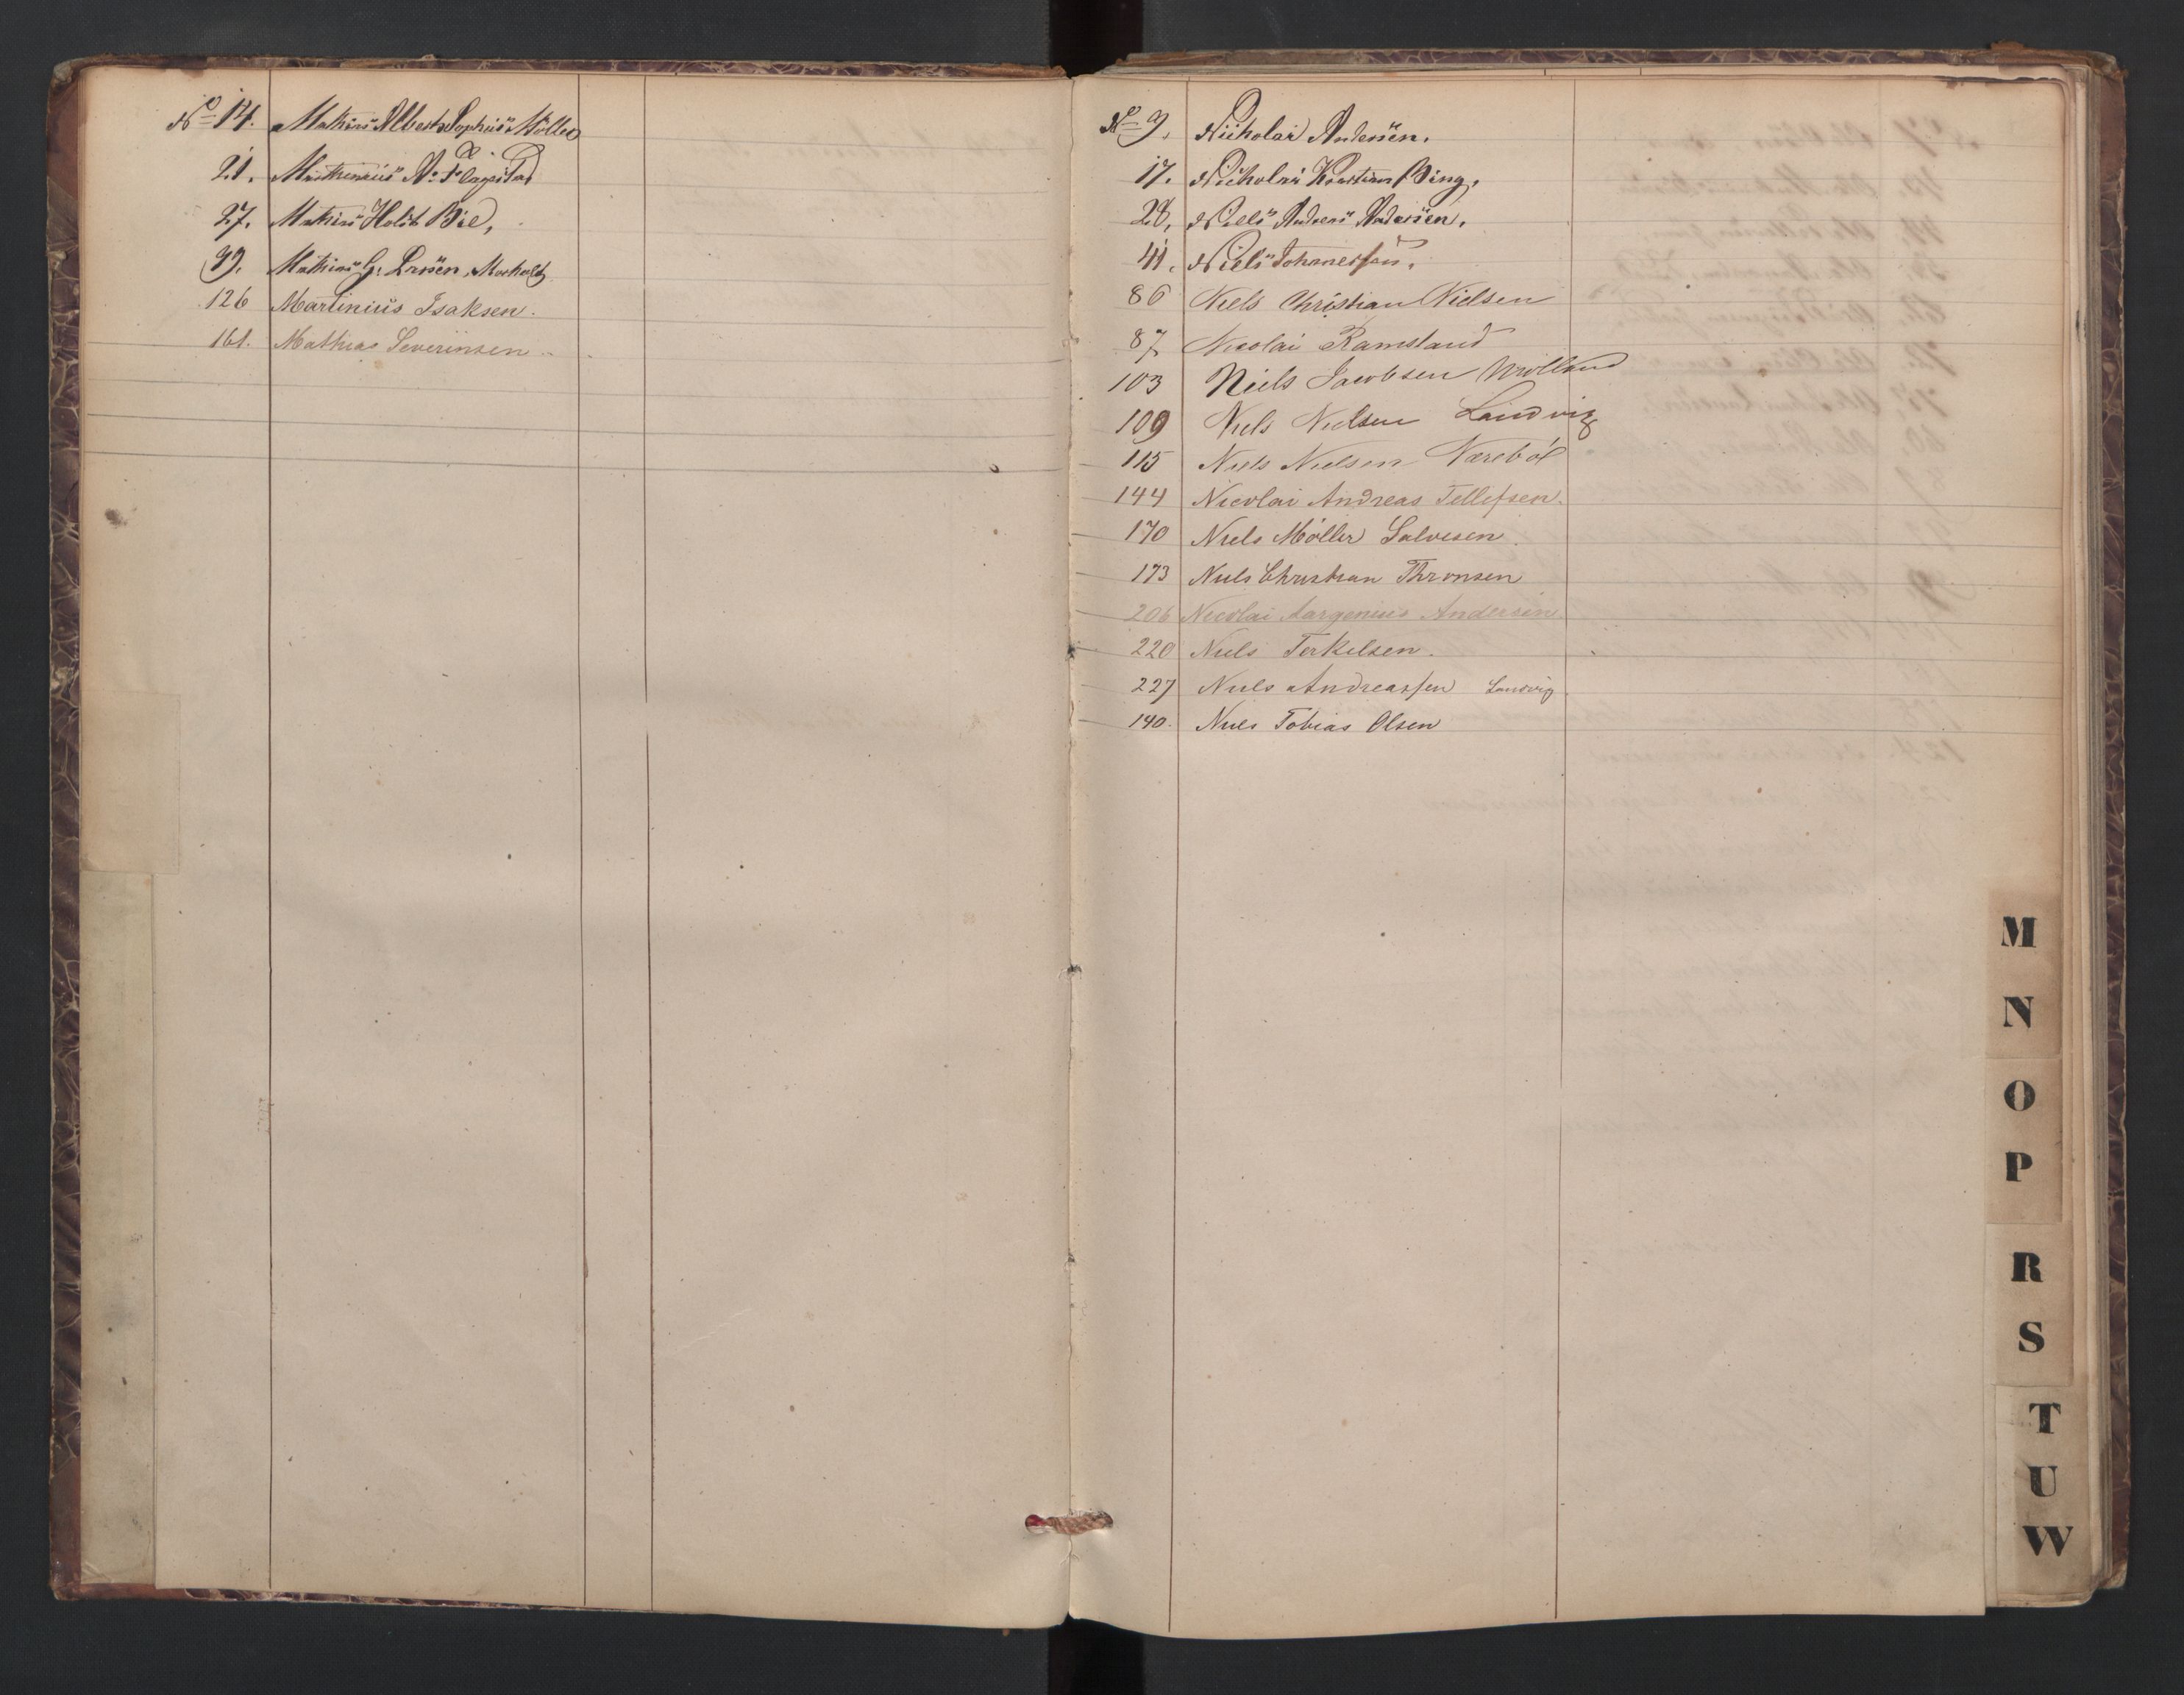 No 14. Mathias Albert Sophus Möller
21. Mathinius A.
27. Mathias Holst Bie,
99. Mathias G. Morholt
126 Martinius Isaksen.
161. Mathias Severinsen
No 9. Nicholai Andersen.
17. Nicholai Christian Bing.
28. Niels Anders Andersen.
41. Niels Johannessen.
86 Niels Christian Nielsen
87 Nicolai Ramsland
103 Niels Jacobsen Molland
109 Niels Nielsen Landvig
115 Niels Nielsen Næreböl
144 Nicolai Andreas Tellefsen.
170 Niels Möller Salvesen.
173 Niels Christian Thronsen
206 Nicolai Aargenius Andersen
220 Niels Terkelsen.
227 Niels Andreassen Landvig
140. Niels Tobias Olsen
M
N
O
P
R
S
T
U
W